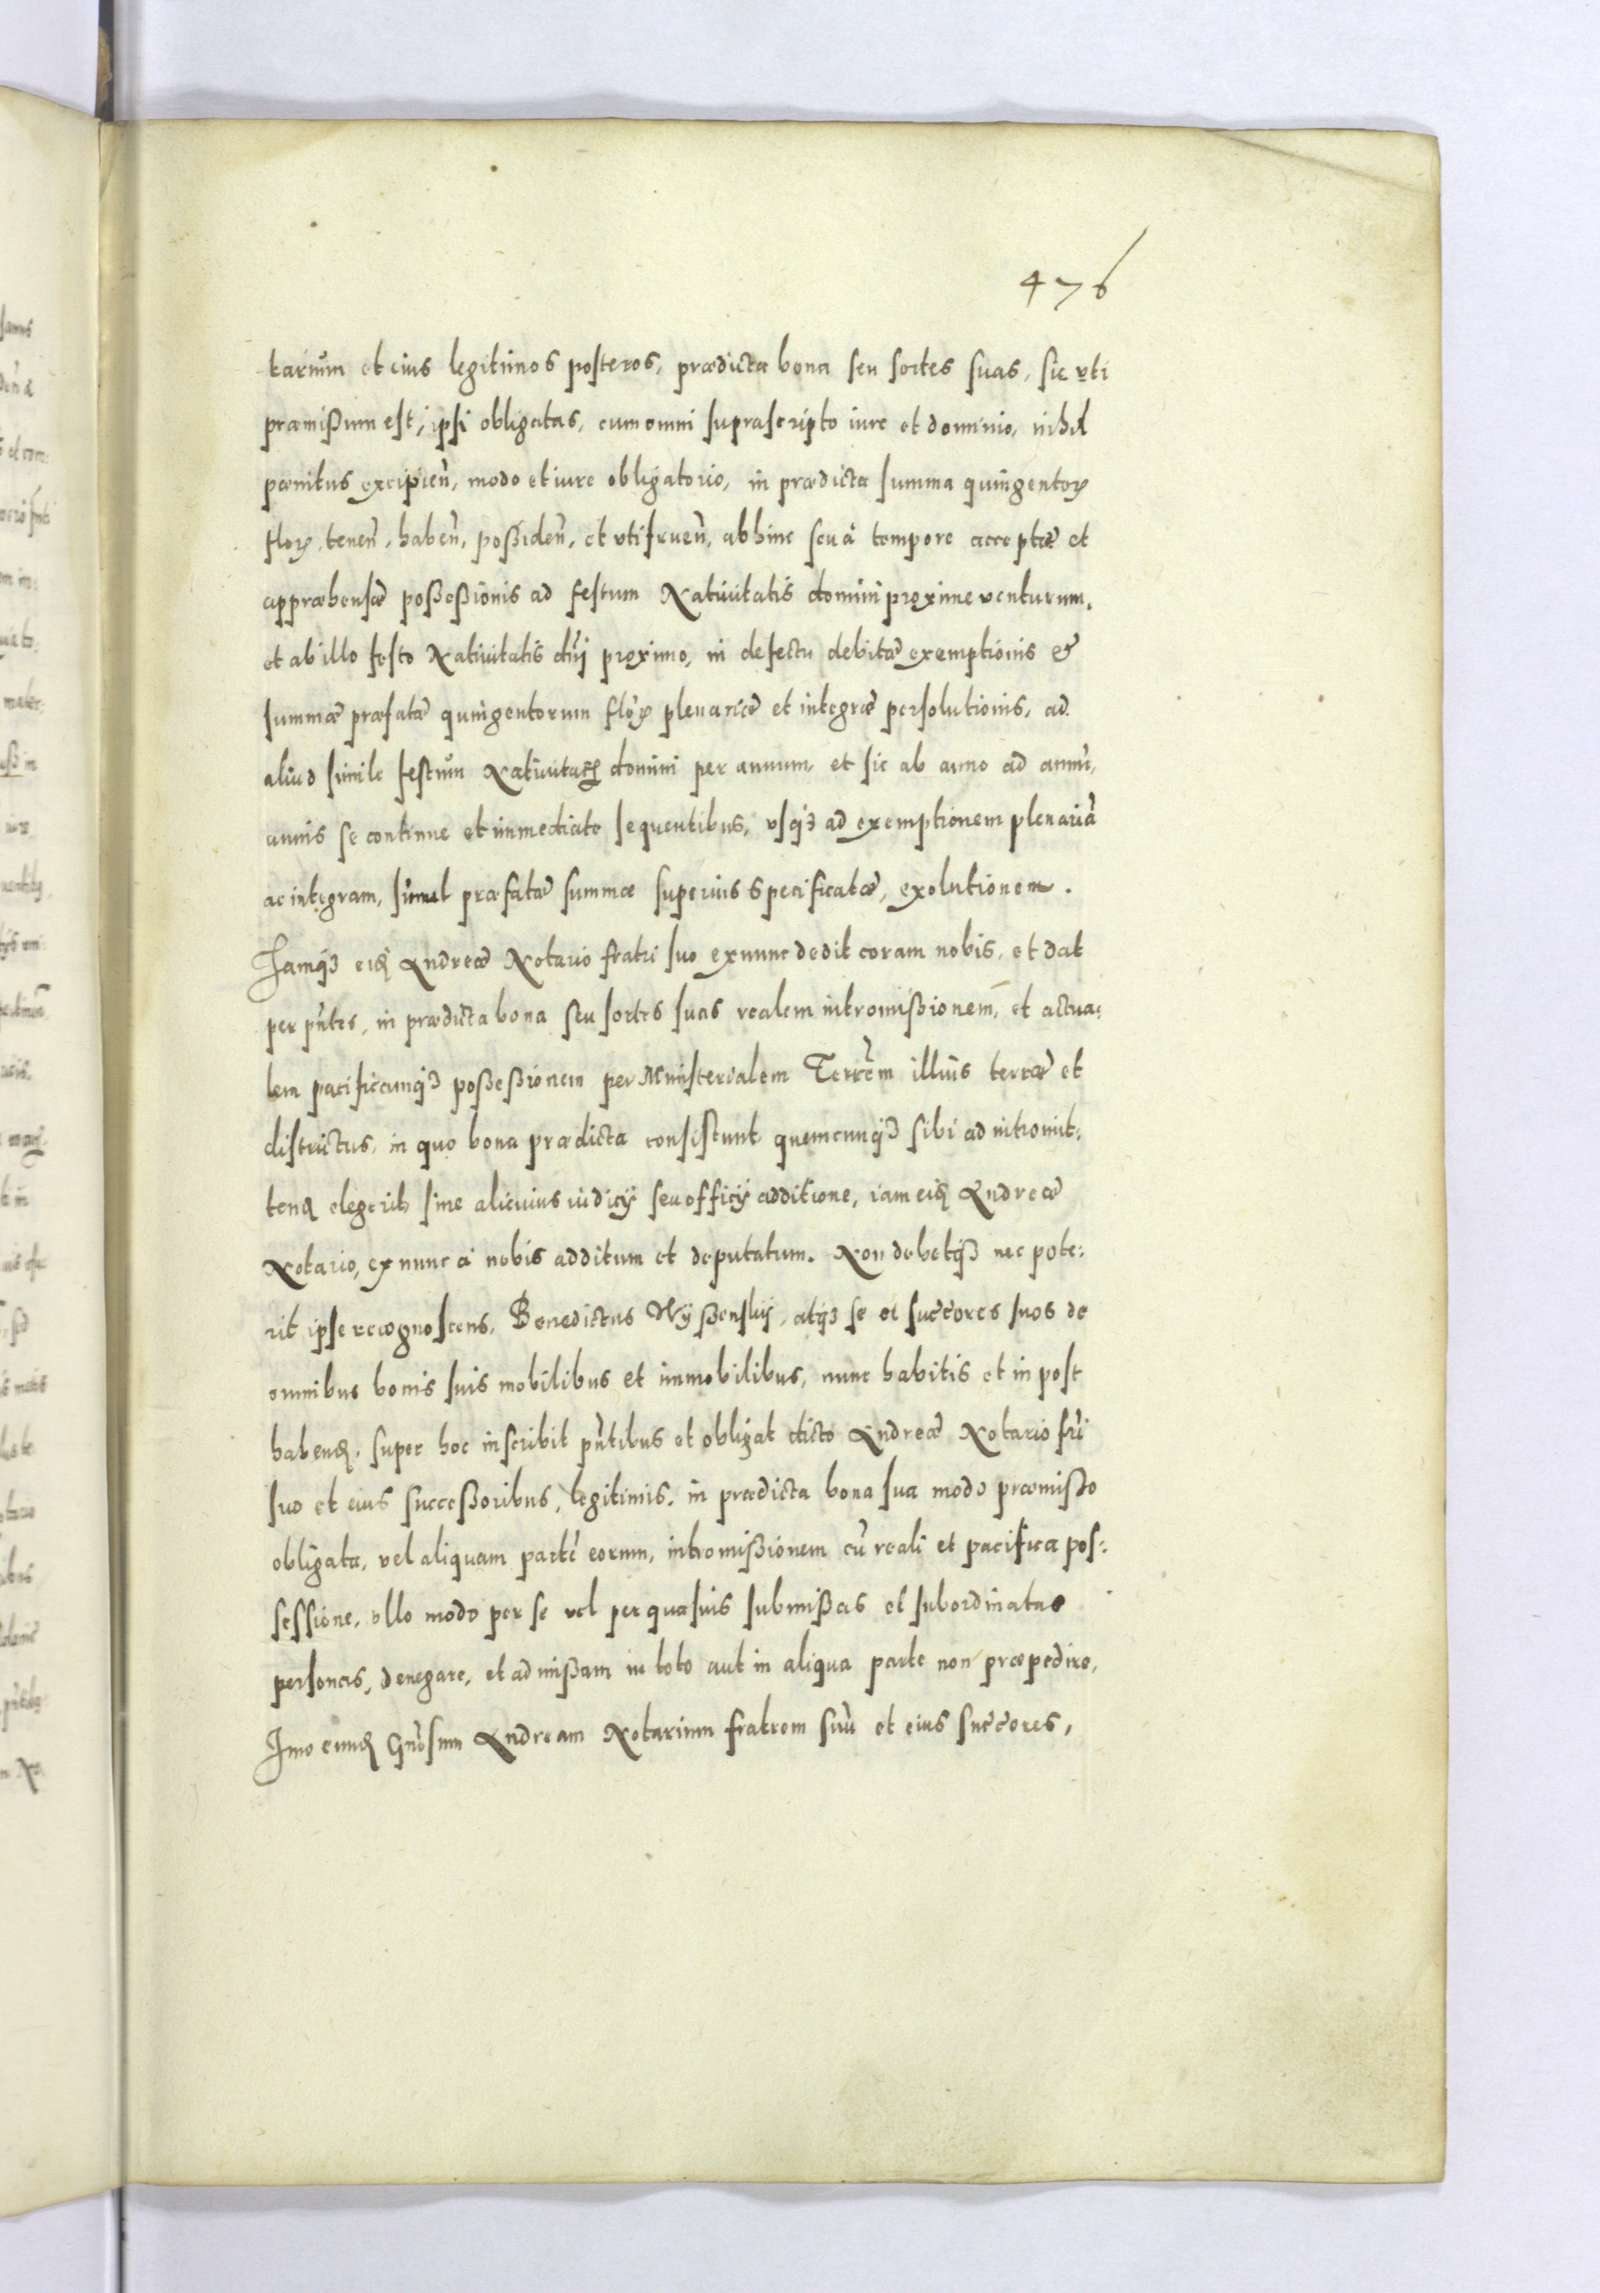 476
tarium et eius legitimos posteros, prædicta bona seu sortes suas, sic vti
præmißum est, ipsi obligatas, cum omni suprascripto iure et dominio, nihil
pænitus excipieñ, modo et iure obligatorio, in prædicta summa quingentoꝝ
floꝝ. teneñ, habeñ, poßideñ, et vtifrueñ, abhinc seu á tempore acceptæ et
appræhensæ poßeßionis ad festum Natiuitatis domini proxime venturum,
et ab illo festo Natiuitatis dñi proximo, in defectu debitæ exemptionis &
summæ præfatæ quingentorum floꝝ plenariæ et integræ persolutionis, ad
aliud simile festum Natiuitatis domini per annum, et sic ab anno ad annũ,
annis se continue et immediate sequentibus, vsqꝫ ad exemptionem plenariã
ac integram, simul præfatæ summæ superius specificatæ, exolutionem.
Iamqꝫ eid Andreæ Notario fratri suo exnunc dedit coram nobis, et dat
per pñtes, in prædicta bona seu sortes suas realem intromißionem, et actua:
lem pacificamqꝫ poßeßionem per Ministerialem Terrẽm illius terræ et
districtus, in quo bona prædicta consistunt quemcunqꝫ sibi ad intromit:
tend elegerit sine alicuius iudicÿ seu officÿ additione, iam eid Andreæ
Notario, ex nunc á nobis additum et deputatum. Non debetqꝫ nec pote:
rit ipse recognoscens, Benedictus Wÿßenskÿ, atqꝫ se et succ̃ores suos de
omnibus bonis suis mobilibus et immobilibus, nunc habitis et in post
habend, super hoc inscribit pñtibus et obligat dicto Andreæ Notario frĩ
suo et eius succeßoribus, legitimis, in prædicta bona sua modo præmißo
obligata, vel aliquam partẽ eorum, intromißionem cũ reali et pacifica pos:
sessione, vllo modo per se vel per quasuis submißas et subordinatas
personas, denegare, et admißam in toto aut in aliqua parte non præpedire,
Imo eund Gñosum Andream Notarium fratrem suũ et eius succ̃ores,